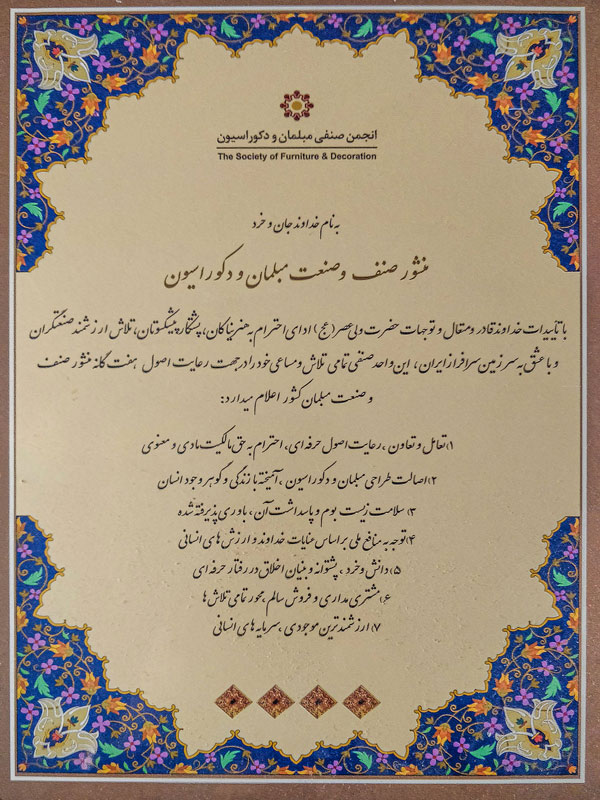 انجمن صنفی مبلمان و دکوراسیون
The Society of Furniture & Decoration
به نام خداوند جان و خرد
منشور صنف و صنعت مبلمان و دکوراسیون
با تأییدات خداوند قادر ومتعال و توجهات حضرت ولی عصر (عج) ادای احترام به هنر نیاکان، پشتکار پیشکسوتان، تلاش ارزشمند صنعتگران
و با عشق به سرزمین سرافراز ایران، این واحد صنفی تمامی تلاش و مساعی خود را در جهت رعایت اصول هفت گانه منشور صنف
و صنعت مبلمان کشور اعلام میدارد:
۱)تعامل و تعاون ، رعایت اصول حرفه ای، احترام به حق مالکیت مادی و معنوی
۲)اصالت طراحی مبلمان و دکوراسیون ، آمیخته با زندگی و گوهر وجود انسان
۳) سلامت زیست بوم و پاسداشت آن ، باوری پذیرفته شده
۴)توجه به منافع ملی بر اساس عنایات خداوند و ارزش های انسانی
۵)دانش وخرد ، پشتوانه و بنیان اخلاق در رفتار حرفه ای
۶)مشتری مداری و فروش سالم ،محور تمامی تلاش ها
۷)ارزشمندترین موجودی ،سرمایه های انسانی